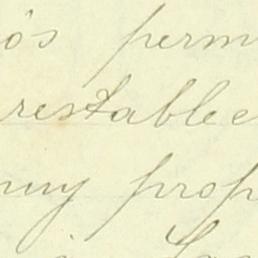 ó's perm
restablee
muy prop